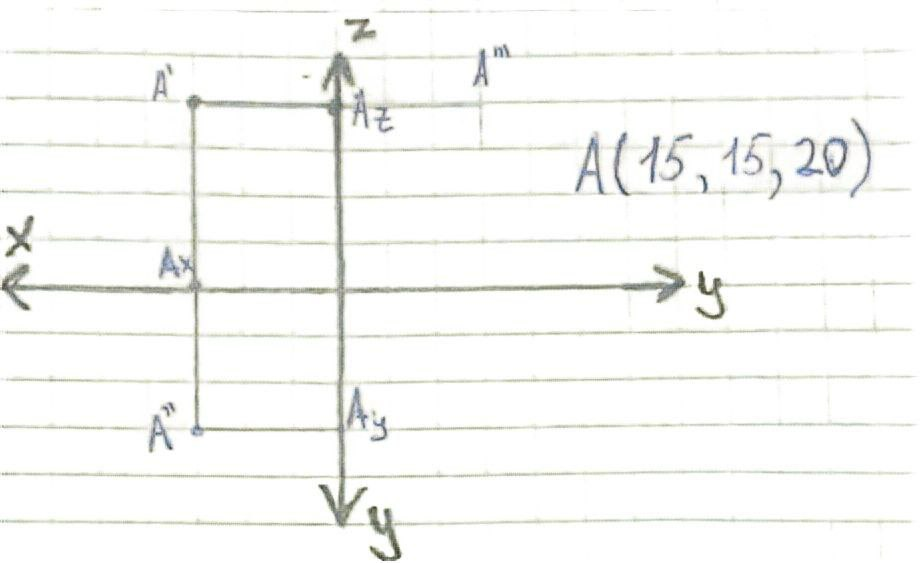 z
A' A'''
Az
A(15, 15, 20)
x
Ax
y
A'' Ay
y